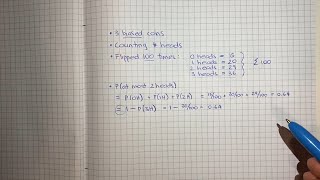 • 3 biased coins
• Counting # heads
• Flipped 100 times: 0 heads = 15
1 heads = 20
2 heads = 29
3 heads = 36
Σ 100
• P(at most 2 heads)
= P(0H) + P(1H) + P(2H) = 15/100 + 20/100 + 29/100 = 0.64
= 1 - P(3H) = 1 - 36/100 = 0.64